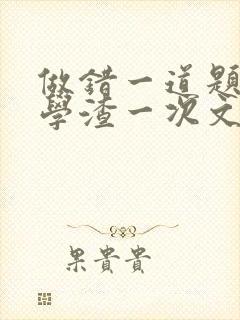 做錯一道題
學渣一次文
果貴貴